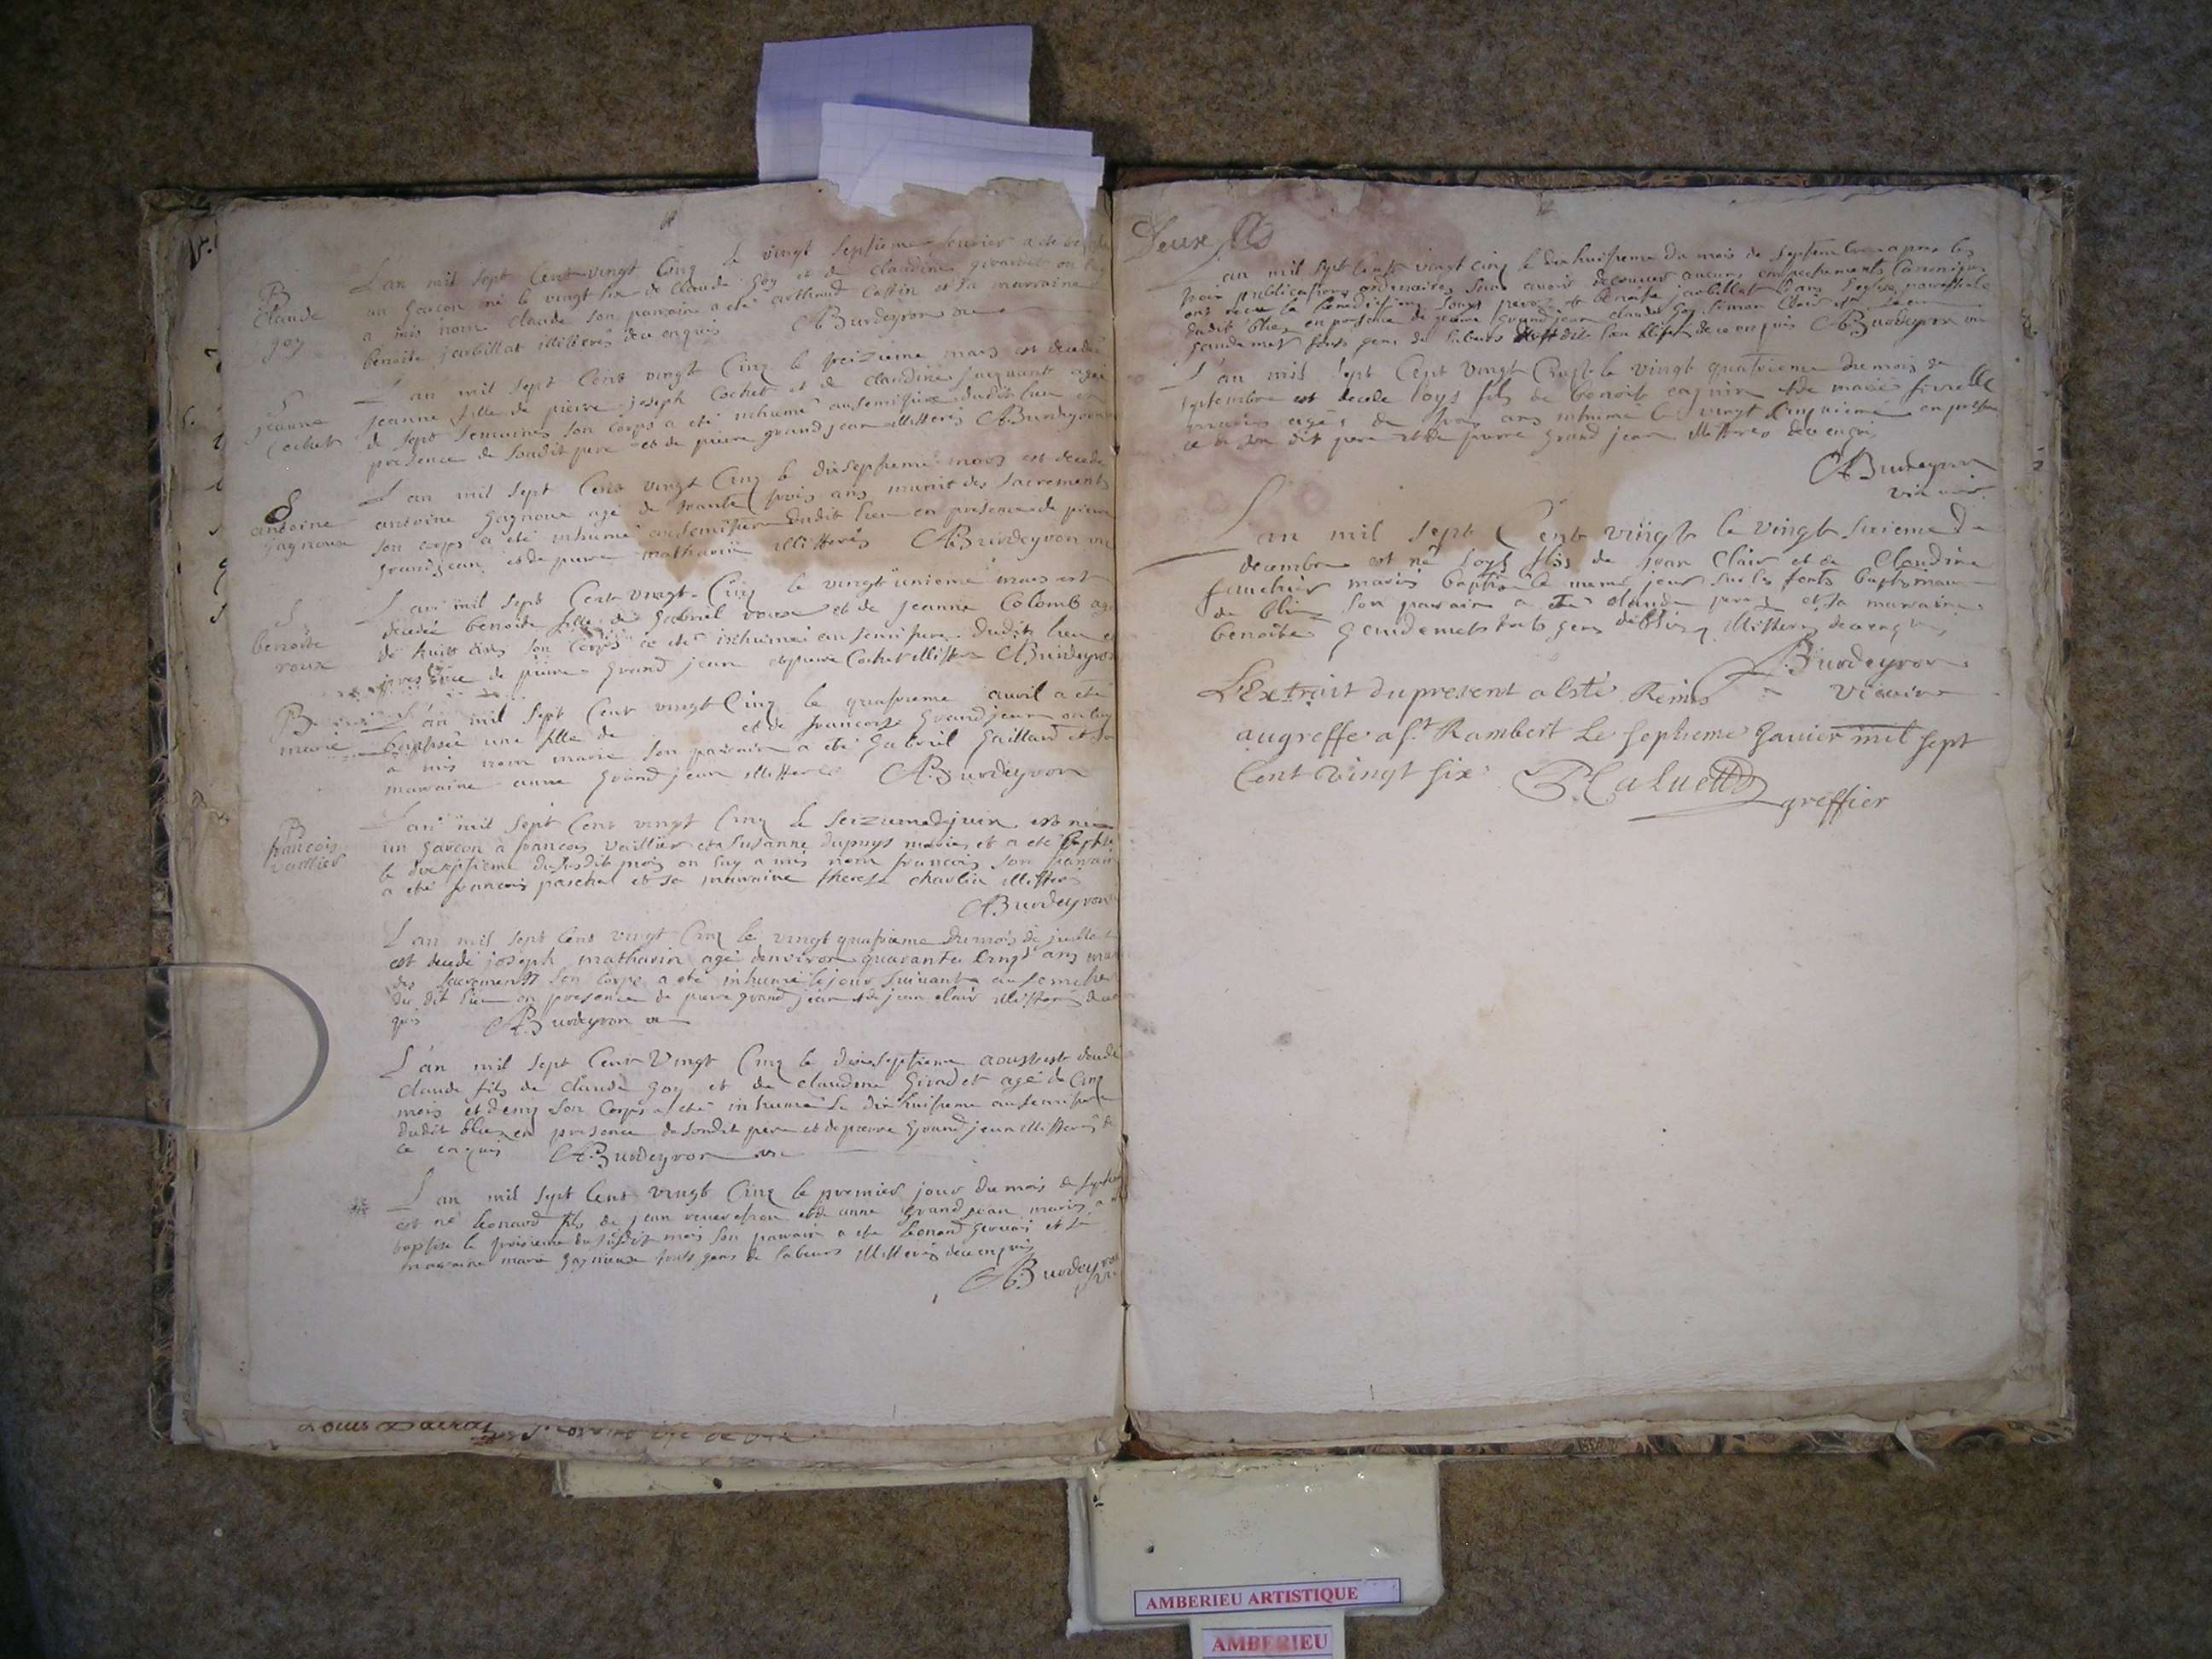 B
Claude
goy
L'an mil sept Cent vingt Cinq le vingt septieme feuvrier a été
un garcon né le vingt six de Claude Goy et de Claudine girardet on luy
a mis nom Claude son parrain a été Cottin et sa marraine
benoite jarbillat illiterés de ce enquis ABurdeyron vic
S
jeanne
Cochet
L'an mil sept Cent vingt Cinq le treizieme mars est decedée
jeanne fille de pierre joseph Cochet et de Claudine jacquant agée
de sept semaines son corps a été inhumé au semitiere dudit lieu en
presence de sondit pere et de pierre grandjean illitterés ABurdeyron
S
antoine
gagnoux
L'an mil sept Cent vingt Cinq le dixseptieme mars est decedé
antoine gagnoux agé de trante trois ans munit des sacrements
son corps a été inhumé au semitiere dudit lieu en presence de pierre
grandjean et de pierre matharin illitterés ABurdeyron vic
S
benoite
roux
L'an mil sept Cent vingt Cinq le vingt unieme mars est
decedée benoite fille de Gabriel roux et de jeanne Colomb agée
de huit ans son corps a été inhumé au semitiere dudit lieu en
presence de pierre grand jean et pierre Cochet illitterés ABurdeyron
B
marie
L'an mil sept Cent vingt Cinq le quatrieme avril a été
baptisée une fille de et de francoise grandjean on luy
a mis nom marie son parrain a été Gabriel Gaillard et sa
marraine anne grand jean illitterés ABurdeyron
B
francois
vaillier
L'an mil sept Cent vingt Cinq le seizieme de juin est né
un garcon a francois vaillier et a Susanne dupuys mariés et a été baptisé
le dixseptieme du susdit mois on luy a mis nom francois son parrain
a été francois paschal et sa marraine therese charlin illitterés
ABurdeyron
L'an mil sept Cent vingt Cinq le vingt quatrieme du mois de juillet
est decedé joseph matharin agé denviron quarante Cinq ans muni
des sacrements son corps a été inhumé le jour suivant au semitiere
du dit lieu en presence de pierre grand jean et de jean clair illitterés de ce
quis ABurdeyron vic
L'an mil sept Cent Vingt Cinq le dixseptieme aoust est decedé
Claude fils de Claude goy et de claudine Giradet agé de Cinq
mois et demy son Corps a été inhumé le dix huitieme au semitiere
dudit bliez en presence de sondit pere et de pierre grand jean illitterés de
ce enquis ABurdeyron vic
L'an mil sept Cent vingt Cinq le premier jour du mois de septembre
est né leonard fils de jean et de anne grand jean mariés a été
baptisé le troisieme du susdit mois son parrain a été leonard gervais et sa
marraine marie gagnieux touts gens de labeurs illitterés de ce enquis
ABurdeyron
vic
Deux sols
L'an mil sept Cent vingt cinq le dix huitieme du mois de septembre apres les
trois publications ordinaires sans avoir decouvert aucuns empechements Canoniques
ont receu la benediction Loüys peroz et benoite jarbillat dans l'eglise paroissiale
dudit bliez en presence de pierre grand jean claude Goy simon Clair et
gendemet touts gens de labeurs dudit lieu illiterés de ce enquis ABurdeyron vic
L'an mil sept Cent vingt Cinq le vingt quatrieme du mois de
septembre est decedé loys fils de benoit cagnin et de marie
mariés agé de trois ans inhumé le vingt Cinquieme en presen
ce de son dit pere et de pierre grand jean illitterés de ce enquis
ABurdeyron
vicaire
L'an mil sept Cent vingt le vingt sixieme de
decembre est né loys fils de jean Clair et de Claudine
fauchier mariés baptisé le meme jour sur les fonts baptismaux
de bliez son parrain a été claude peroz et sa marraine
benoite gendemet touts gens de bliez illitterés de ce enquis
ABurdeyron
vicaire
L'Extrait du present a Esté Remis
au greffe a St Rambert Le septieme Janvier mil sept
Cent vingt six P. Caluet
greffier
AMBERIEU ARTISTIQUE
AMBERIEU